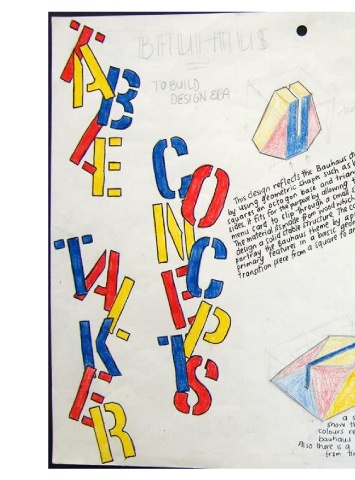 BAUHAUS
TO BUILD
DESIGN ERA
TABLE
TALKER
CONCEPTS
This design reflects the Bauhaus
by using geometric shapes such as
squares an octagon base and
sides. It fits for the purpose by allowing
menu card to clip through a small
The material is made from wood which
design a solid stable structure. The
portray the Bauhaus theme by
primary features in a basic
transition piece from a square to
a
show
colours
bauhaus
Also there is a
from